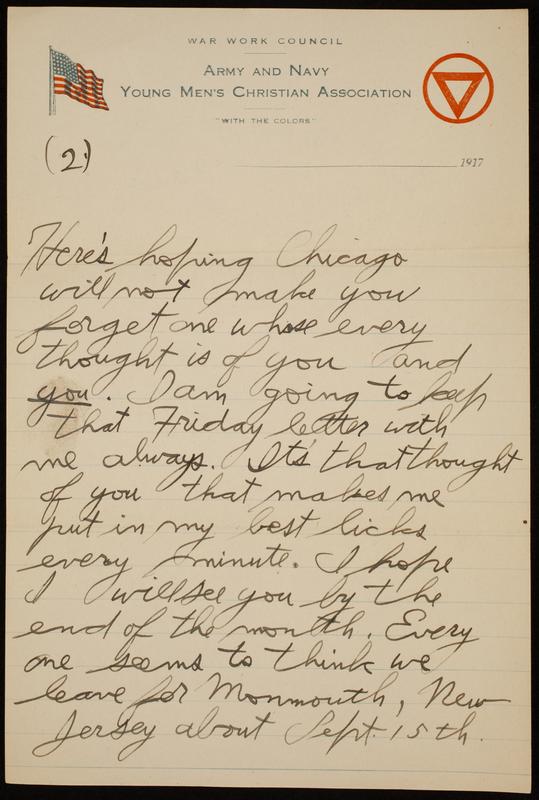 WAR WORK COUNCIL
ARMY AND NAVY
YOUNG MEN'S CHRISTIAN ASSOCIATION
"WITH THE COLORS"
(2.)
1917
Here's hoping Chicago
will not make you
forget one whose every
thought is of you and
you. I am going to keep
that Friday letter with
me always. It's that thought
of you that makes me
put in my best licks
every minute. I hope
I will see you by the
end of the month. Every
one seems to think we
leave for Monmouth, New
Jersey about Sept. 15th.